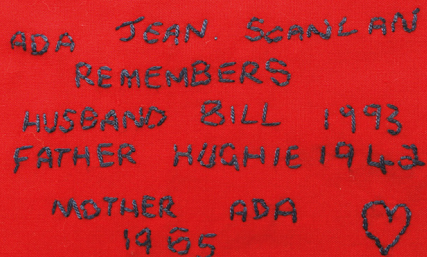 ADA JEAN. SCANLAN
REMEMBERS
HUSBAND BILL 1993
FATHER HUGHIE 1942
MOTHER ADA
1965